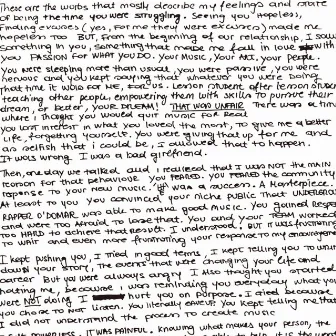 These are the words that mostly describe my feelings and state
of being the time you were struggling. Seeing you hopeless,
finding excuses (yes, for me they were excuses) made me
hopeless too BUT, from the beginning of our relationship, I saw
something in you, something that made me fall in love with
you. PASSION FOR WHAT YOU DO. YOUR MUSIC, YOUR ART, your people.
You were sleeping more than usual, you were passive, you were
nervous and you kept saying that whatever you were doing
that time it was for me, for us. Lesson student after lesson student
teaching other people, empowering them with skills to pursue their
dream, or better, YOUR DREAM! THAT WAS UNFAIR. There was a time
where I thought you would quit music for real
you lost interest in what you loved the most, to give me a better
life, forgetting yourself. You were giving that up for me and
as selfish that I could be, I allowed that to happen.
It was wrong. I was a bad girlfriend.
Then, one day we talked, and I realised that I WAS NOT THE MAIN
reason for that behaviour. You feared the community
response to your new music. It was a success. A Masterpiece.
At least to you you convinced your niche public that UNDERGROUND
RAPPER O'DOMAR was able to make good music. You gained respect
and were too afraid to lose that. You and your TEAM worked
too HARD to achieve that result. I understood, BUT it was frustrating
to wait and even more frustrating your response to my encouragement
I kept pushing you, I tried in good terms, I kept telling you to not
doubt your story, the events that were changing your life and
career. But you were always angry. I also thought you started
hating me, because I was reminding you everyday what you
were NOT doing. I hurt you on purpose. I cried because
you chose to not listen. You literally gave up. You kept telling me that
I did not understand the process to create music
IT WAS PAINFUL. Knowing what makes your person,